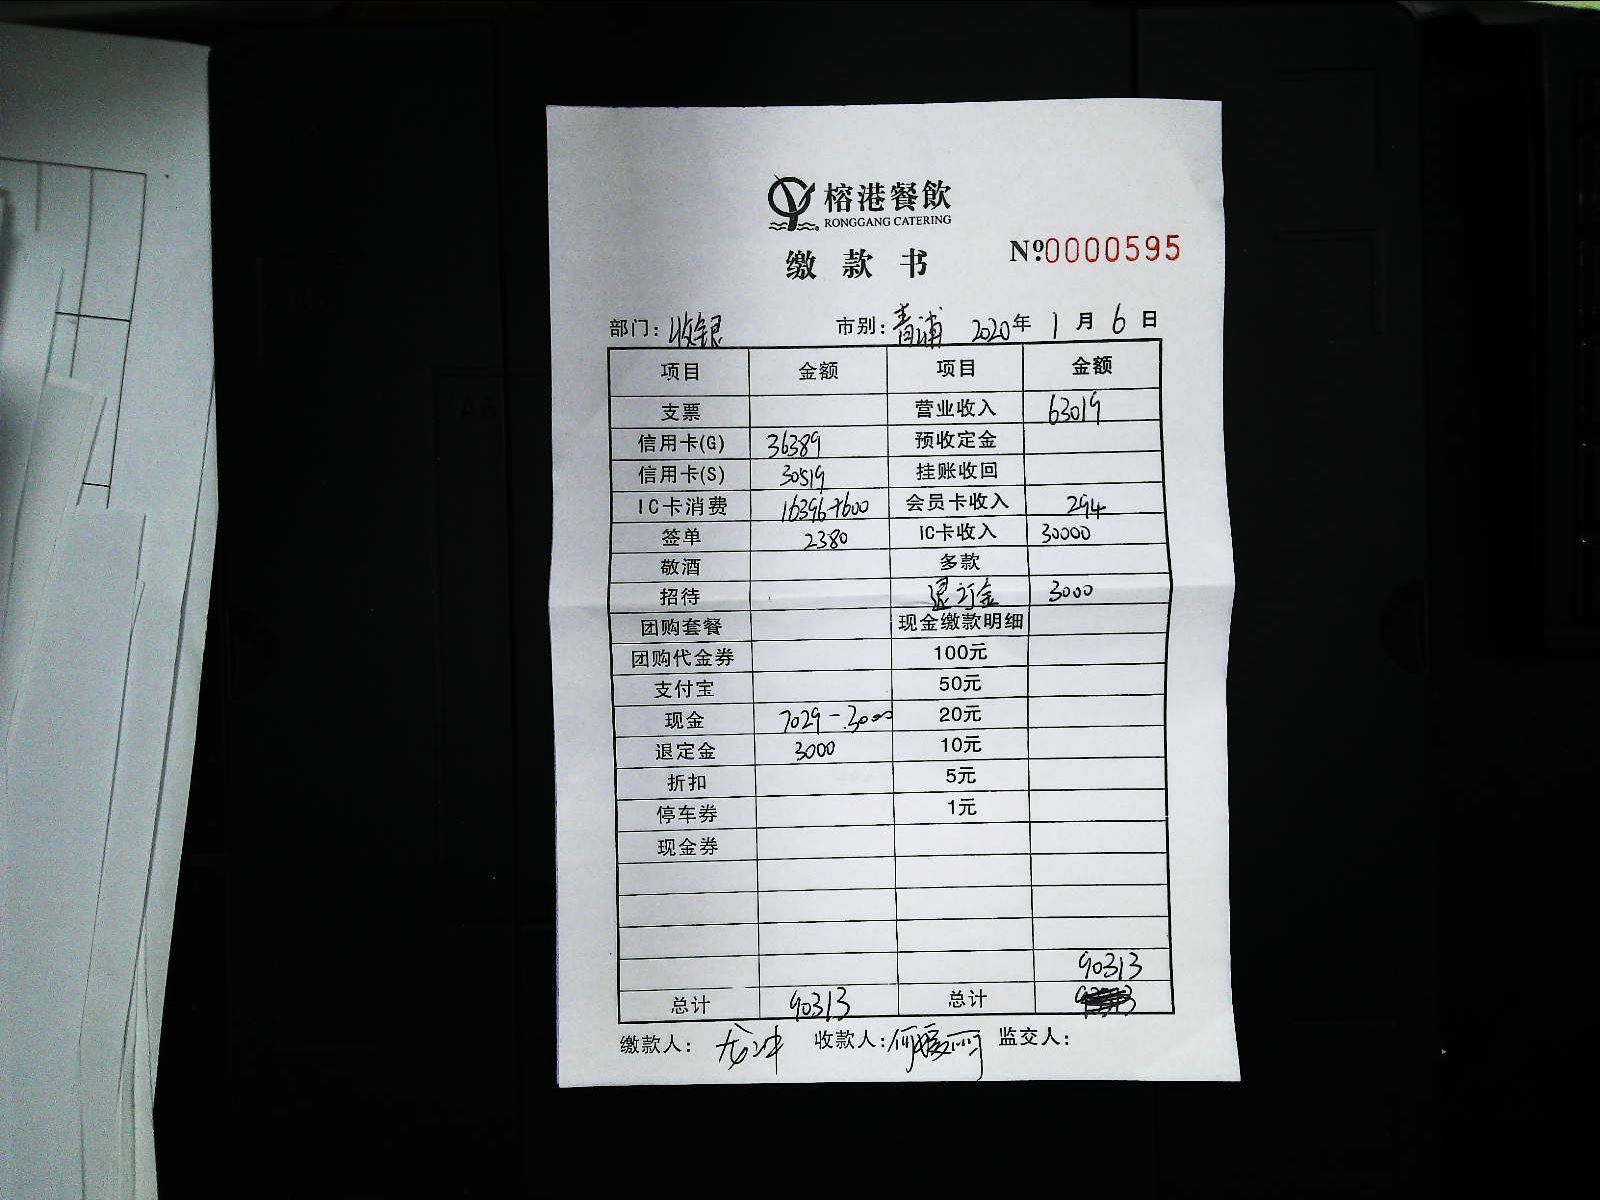 榕港餐飲
RONGGANG CATERING
缴款书 Nº:0000595
部门: 收银 市别: 青浦 2020年 1月 6日
项目 金额 项目 金额
支票 营业收入 63019
信用卡(G) 36389 预收定金
信用卡(S) 30519 挂账收回
IC卡消费 16396+600 会员卡收入 294
签单 2380 IC卡收入 30000
敬酒 多款
招待 退订金 3000
团购套餐 现金缴款明细
团购代金券 100元
支付宝 50元
现金 7029-3000 20元
退定金 3000 10元
折扣 5元
停车券 1元
现金券
90313
总计 90313 总计
缴款人: 收款人: 监交人: